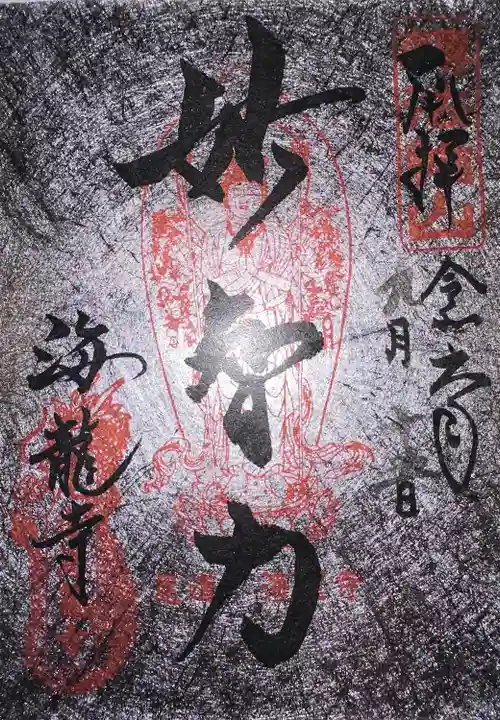 奉拝
令和六年
九月
日
妙智力
海龍寺